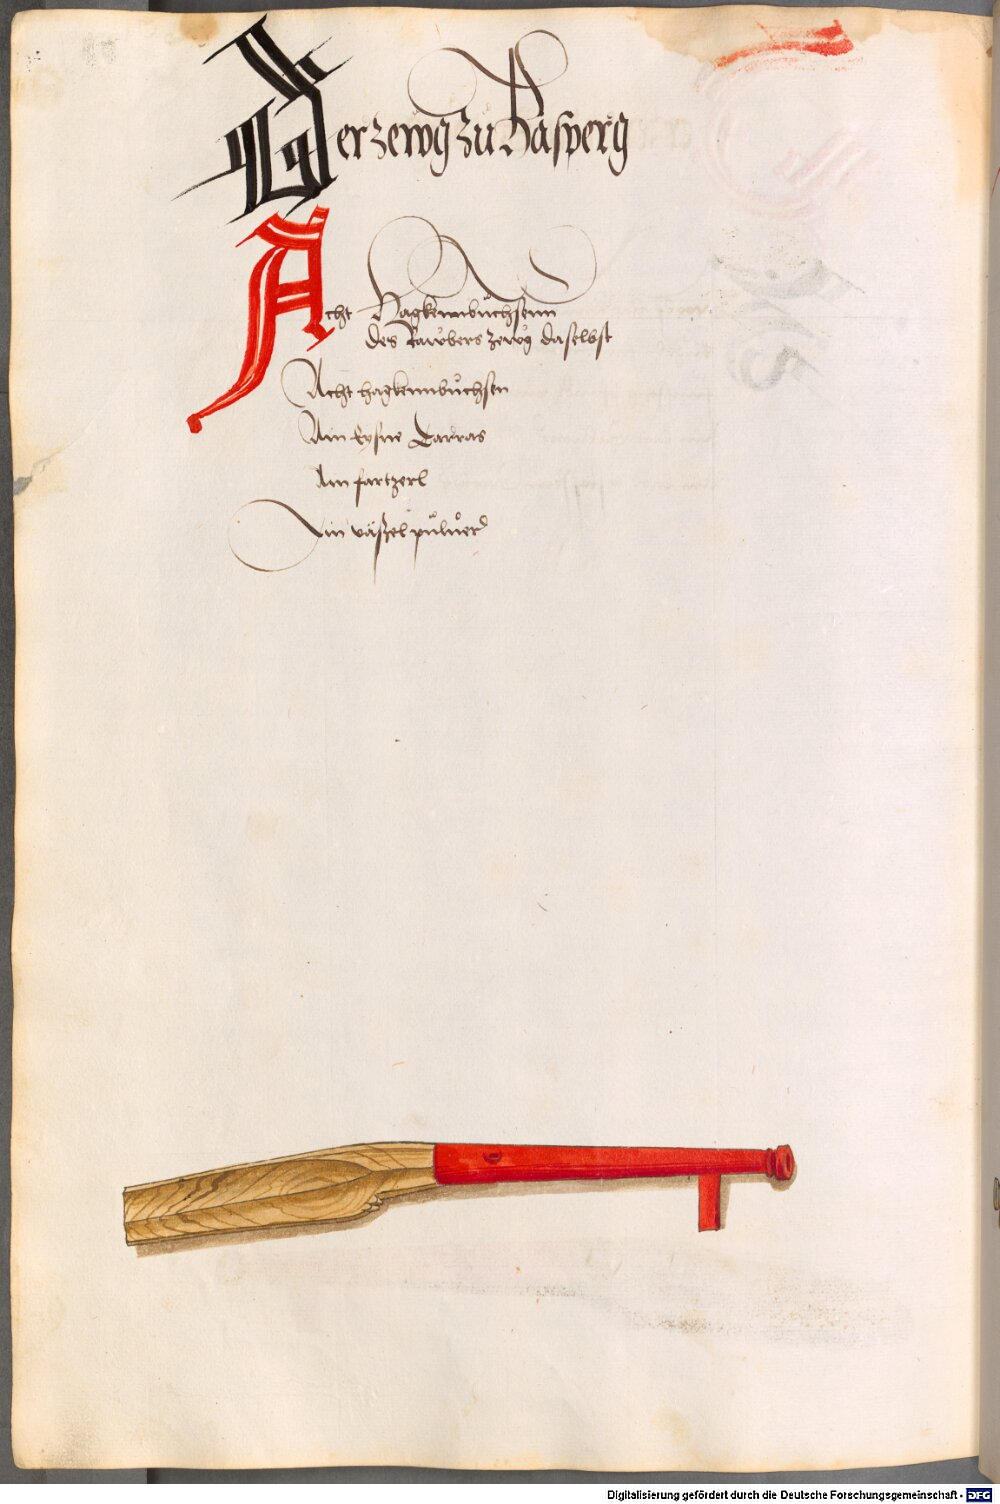 Der zewg zu Hasperg
Acht Hagkennbuchsenn
des Rawbers zewg daselbst
Acht hagkennbuchsen
Ain eysne Tarras
Ain fartzerl
Ain väßel pulver
Digitalisierung gefördert durch die Deutsche Forschungsgemeinschaft - DFG